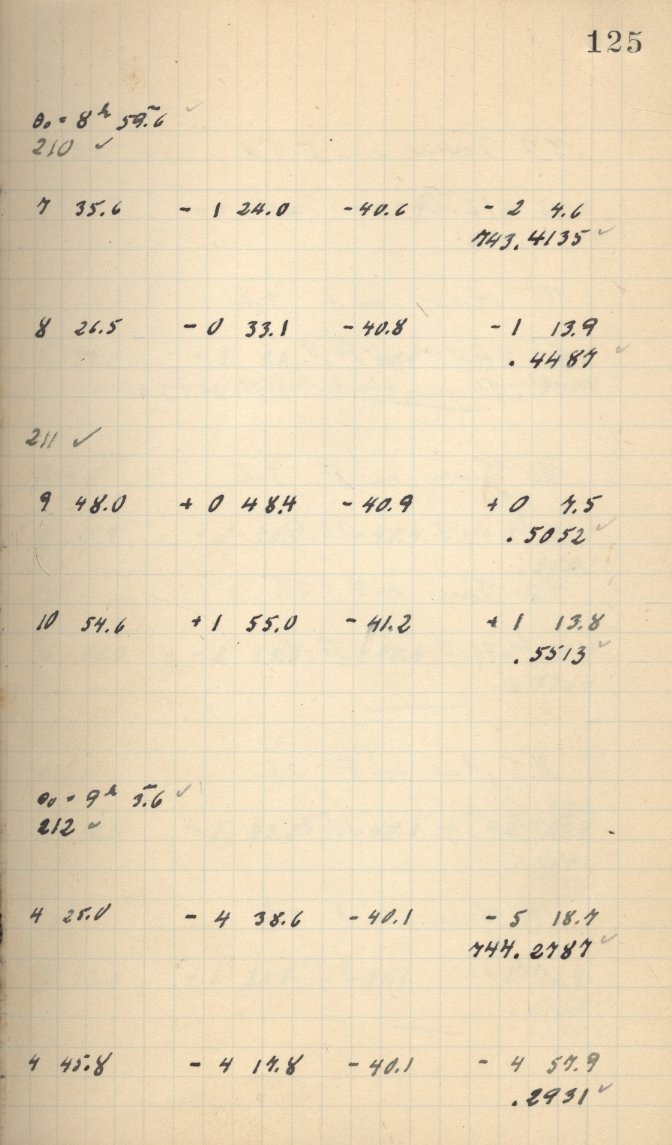 125
θ₀ = 8ʰ 59.ᵐ6 ✓
210 ✓
7 35.6 - 1 24.0 -40.6 - 2 4.6
743.4135 ✓
8 26.5 - 0 33.1 -40.8 - 1 13.9
.4487 ✓
211 ✓
9 48.0 + 0 48.4 -40.9 + 0 7.5
.5052 ✓
10 54.6 + 1 55.0 -41.2 + 1 13.8
.5513 ✓
θ₀ = 9ʰ 3.ᵐ6 ✓
212 ✓
4 25.0 - 4 38.6 -40.1 - 5 18.7
744.2787 ✓
4 45.8 - 4 17.8 -40.1 - 4 57.9
.2931 ✓